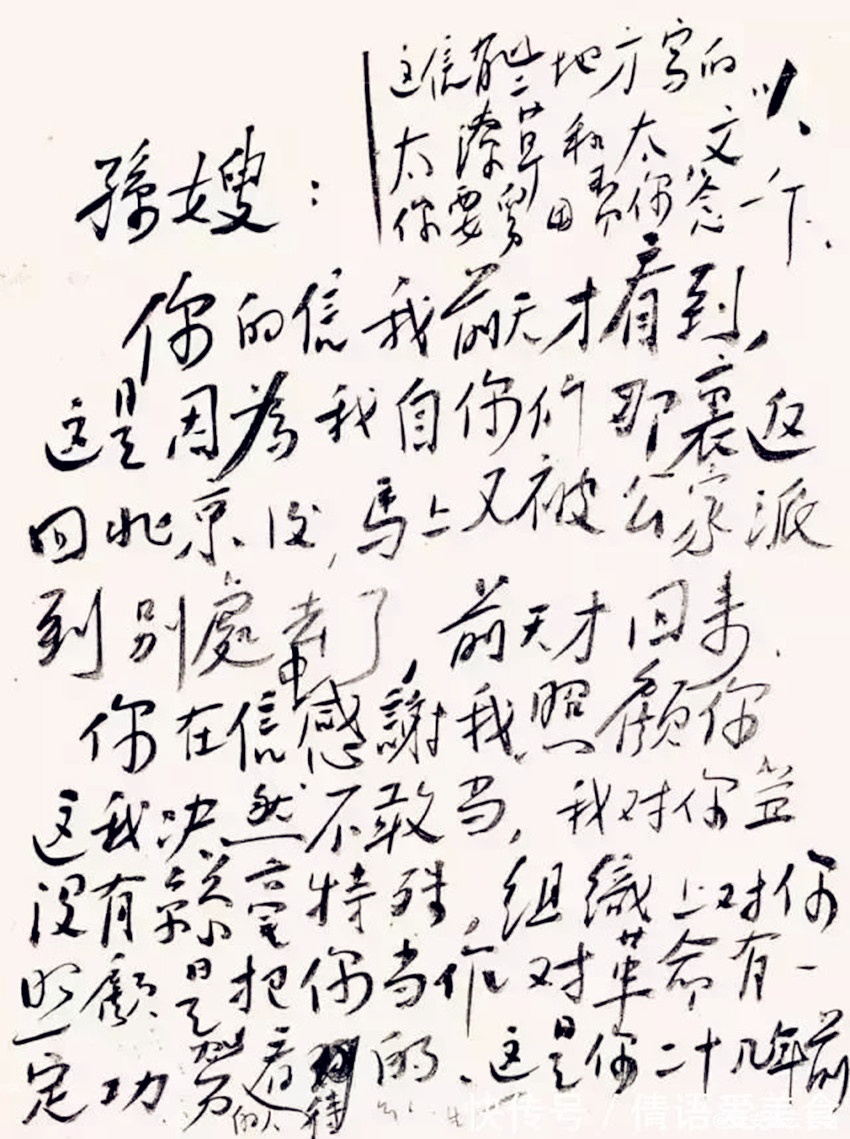 这信有些地方寫的
太潦草和太文
你要 帮你念一下.
孫嫂：
你的信我前天才看到，
这是因為我自你们那裏返
回北京后，馬上又被公家派
到别處去了，前天才回来.
你在信中感謝我照顧你
这我决然不敢当，我对你並
没有絲毫特殊，組織上对你
照顧是把你当作对革命有一
定功劳的人看待的、这是你二十几年前
快传号 / 倩语爱美食